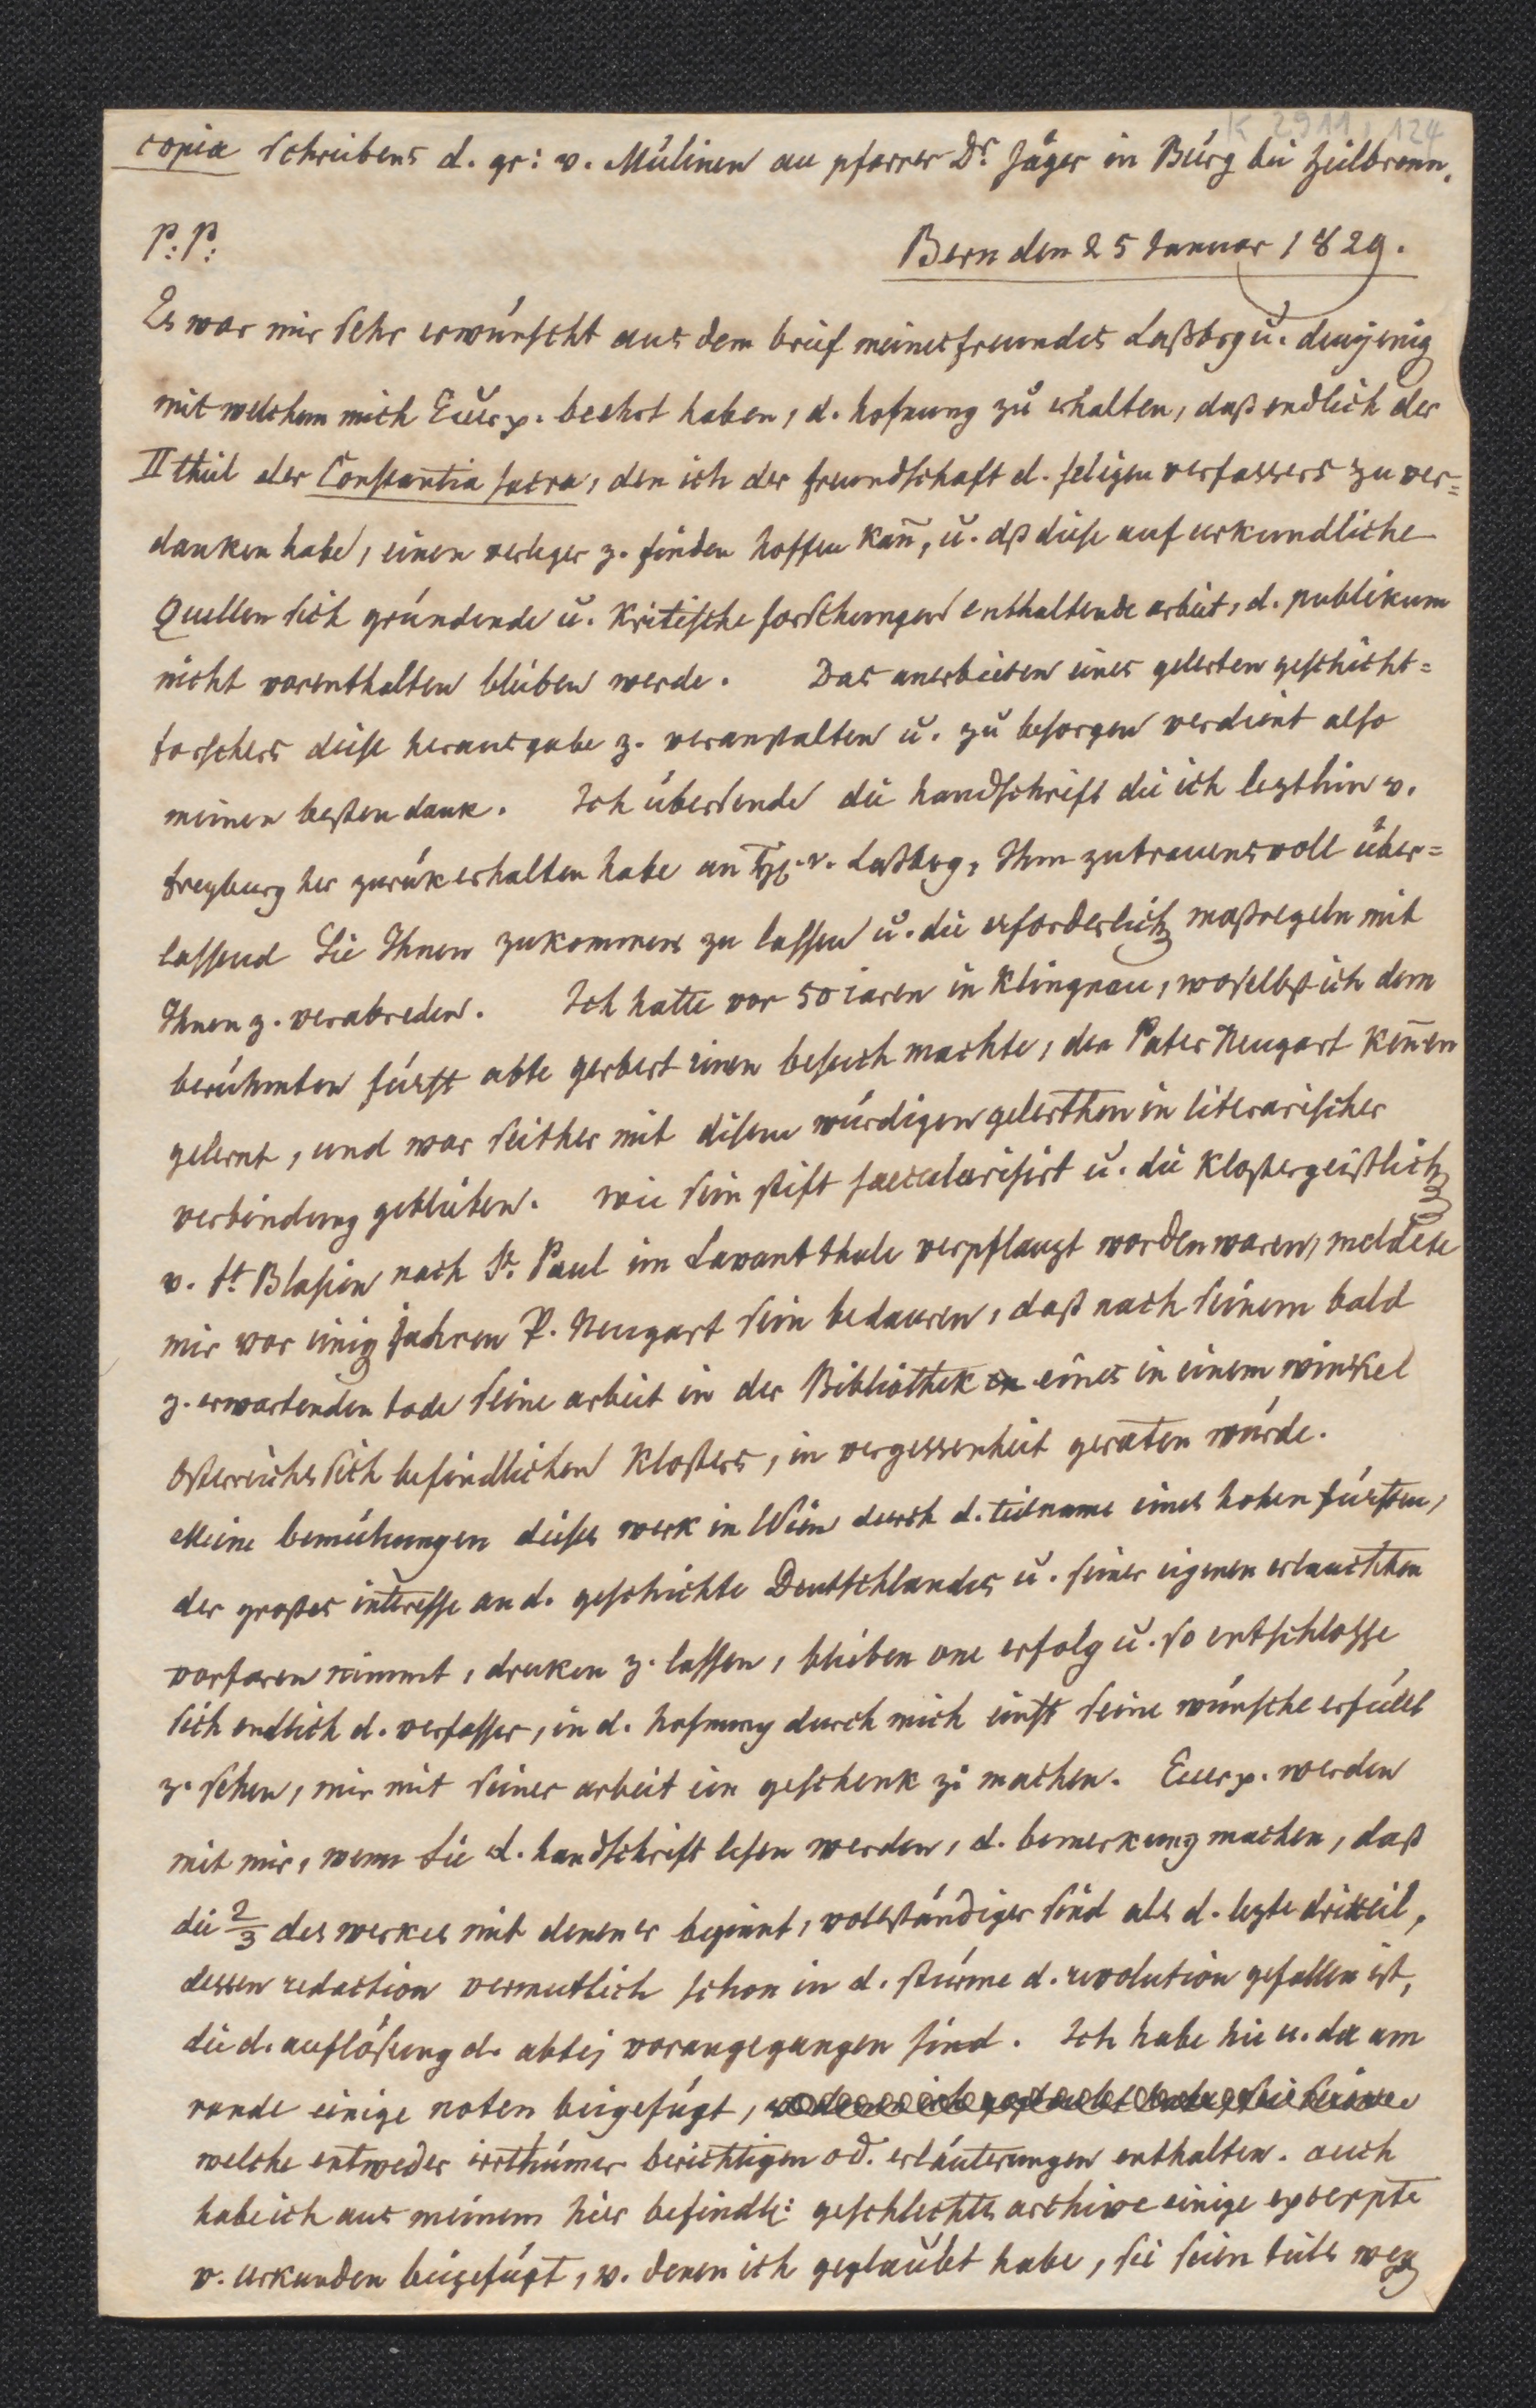 K 2911, 124
copia Schreibens d. gr: v. Mülinen an pfarrer Dr. Jäger in Bürg bei Heilbronn.
P: P:
Bern den 25 Januar 1829.
Es war mir Sehr erwünscht aus dem brief meines freundes Laßbrg u. demjenig
mit welchem mich Euer p. beehrt haben, d. hofnung zu erhalten, daß endlich der
II theil der Constantia sacra, den ich der freundschaft d. seligen verfassers zu ver=
danken habe, einen verleger z. finden hoffen kañ, u. dß diese auf urkundliche
Quellen Sich gründende u. Kritische forschungen enthaltende arbeit, d. publikum
nicht vorenthalten bleiben werde. Das anerbieten eines gelerten geschicht=
forschers diese herausgabe z. veranstalten u. zu besorgen verdient also
meinen besten dank. Ich übersende die handschrift die ich lezthin v.
freyburg her zurük erhalten habe an v. Laßbrg, Ihm zutrauensvoll über=
lassend Sie Ihnen zukommen zu lassen u. die erforderlich maßregeln mit
Ihnen z. verabreden. Ich hatte vor 50 iaren in Klingnau, woselbst ich dem
berühmten fürst abte gerbert einen besuch machte, den Pater Neugart Keñen
gelernt, und war Seither mit disem würdigen gelerthen in literarischer
verbindung geblieben. wie Sein stift saecularisirt u. die Klostergeistlich
v. St. Blasien nach St. Paul im Lavantthale verpflanzt worden waren, meldete
mir vor einig Jahren P. Neugart Sein bedauren, daß nach Seinem bald
z. erwartenden tode Seine arbeit in der Bibliothek in eines in einem winkel
Osterreichs Sich befindlichen Klosters, in vergessenheit geraten würde.
Meine bemühungen dieses werk in Wien durch d. teilname eines hohen fürsten,
der großes interesse an d. geschichte Deutschlandes u. seiner eigenen erlauchten
vorfaren nimmt, druken z. lassen, blieben one erfolg u. So entschlosse
Sich endlich d. verfasser, in d. hofnung durch mich einst Seine wünsche erfüllt
z. Sehen, mir mit Seiner arbeit ein geschenk zu machen. Euer p. werden
mit mir, wenn Sie d. handschrift lesen werden, d. bemerkung machen, daß
die 2/3 des werkes mit denen er beginnt, vollständiger Sind als d. lezte dritteil,
dessen redaction vermutlich schon in d. stürme d. revolution gefallen ist,
die d. auflösung d. abtei vorangegangen sind. Ich habe hie u. da am
rande einige noten beigefügt,
welche entweder irrthümer berichtigen od. erläuterungen enthalten. auch
habe ich aus meinem hier befindle: geschlechts archive einige excerpte
v. urkunden beigefügt, v. denen ich geglaubt habe, Sie Seien teils weg